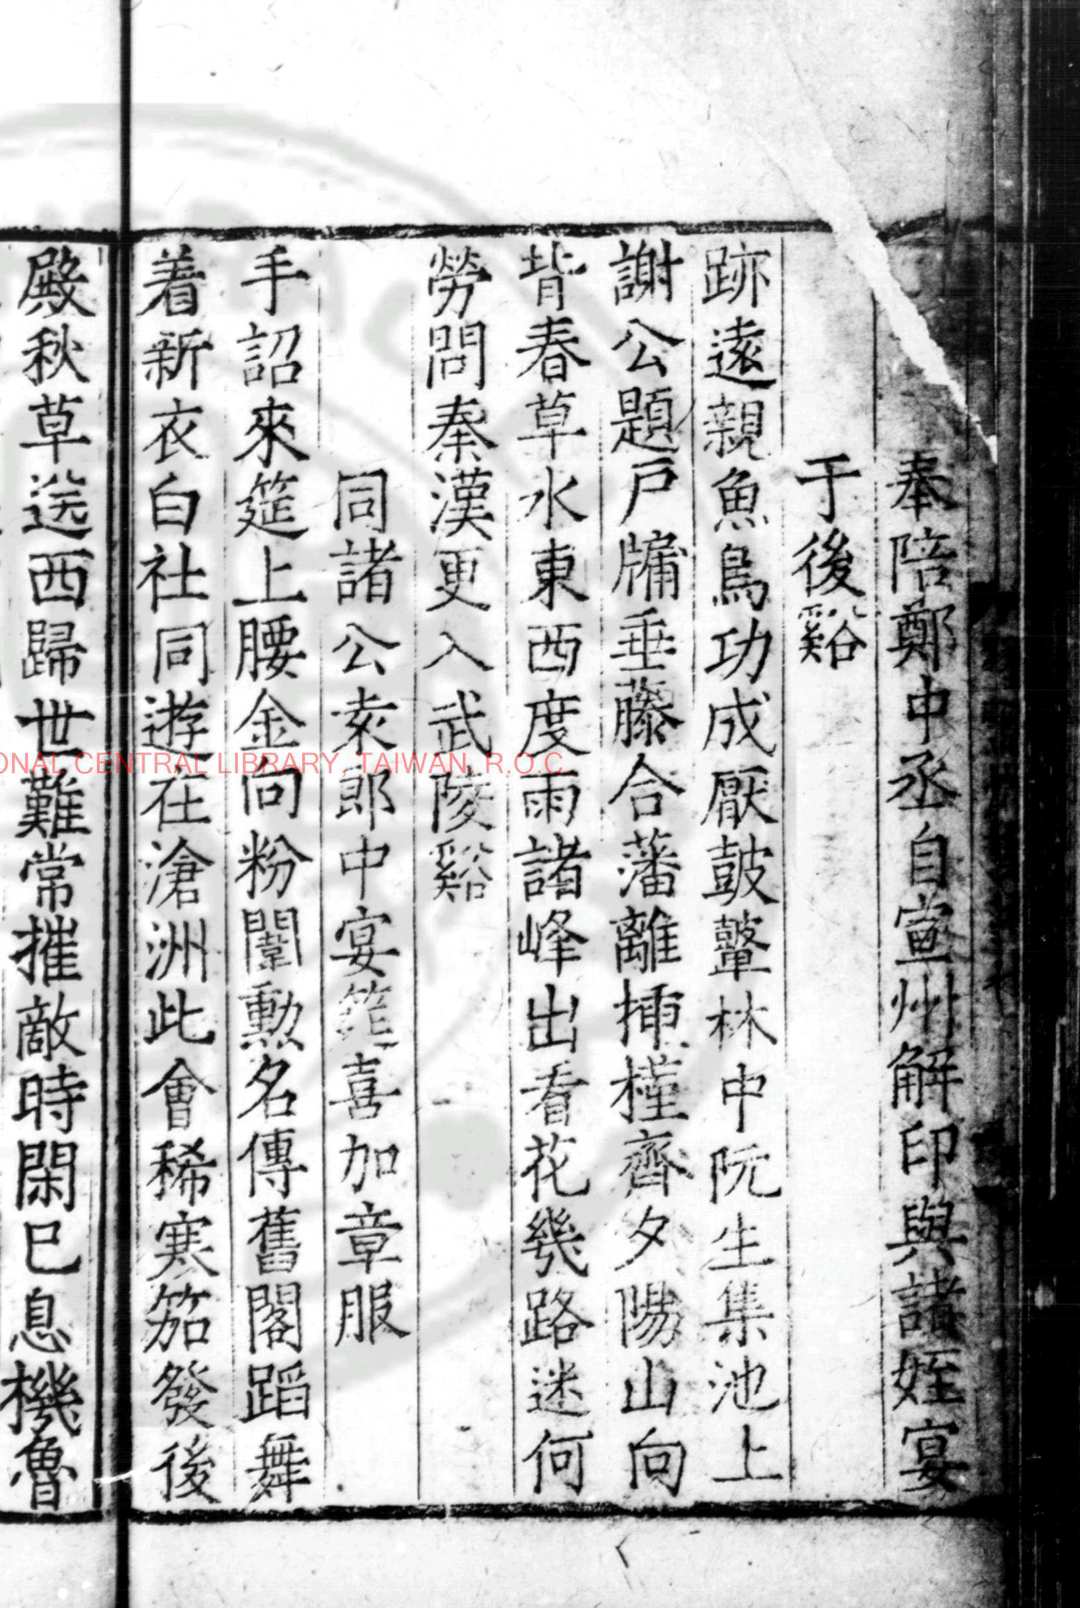 奉陪鄭中丞自宣州解印與諸姪宴
于後谿
跡遠親魚鳥功成厭鼓鼙林中阮生集池上
謝公題戶牖垂藤合藩離揷槿齊夕陽山向
背春草水東西度雨諸峰出看花幾路迷何
勞問秦漢更入武陵谿
同諸公袁郎中宴筵喜加章服
手詔來筵上腰金向粉闈勳名傳舊閣蹈舞
着新衣白社同遊在滄洲此會稀寒笳發後
殿秋草送西歸世難常摧敵時閑已息機魯
NATIONAL CENTRAL LIBRARY, TAIWAN, R.O.C.